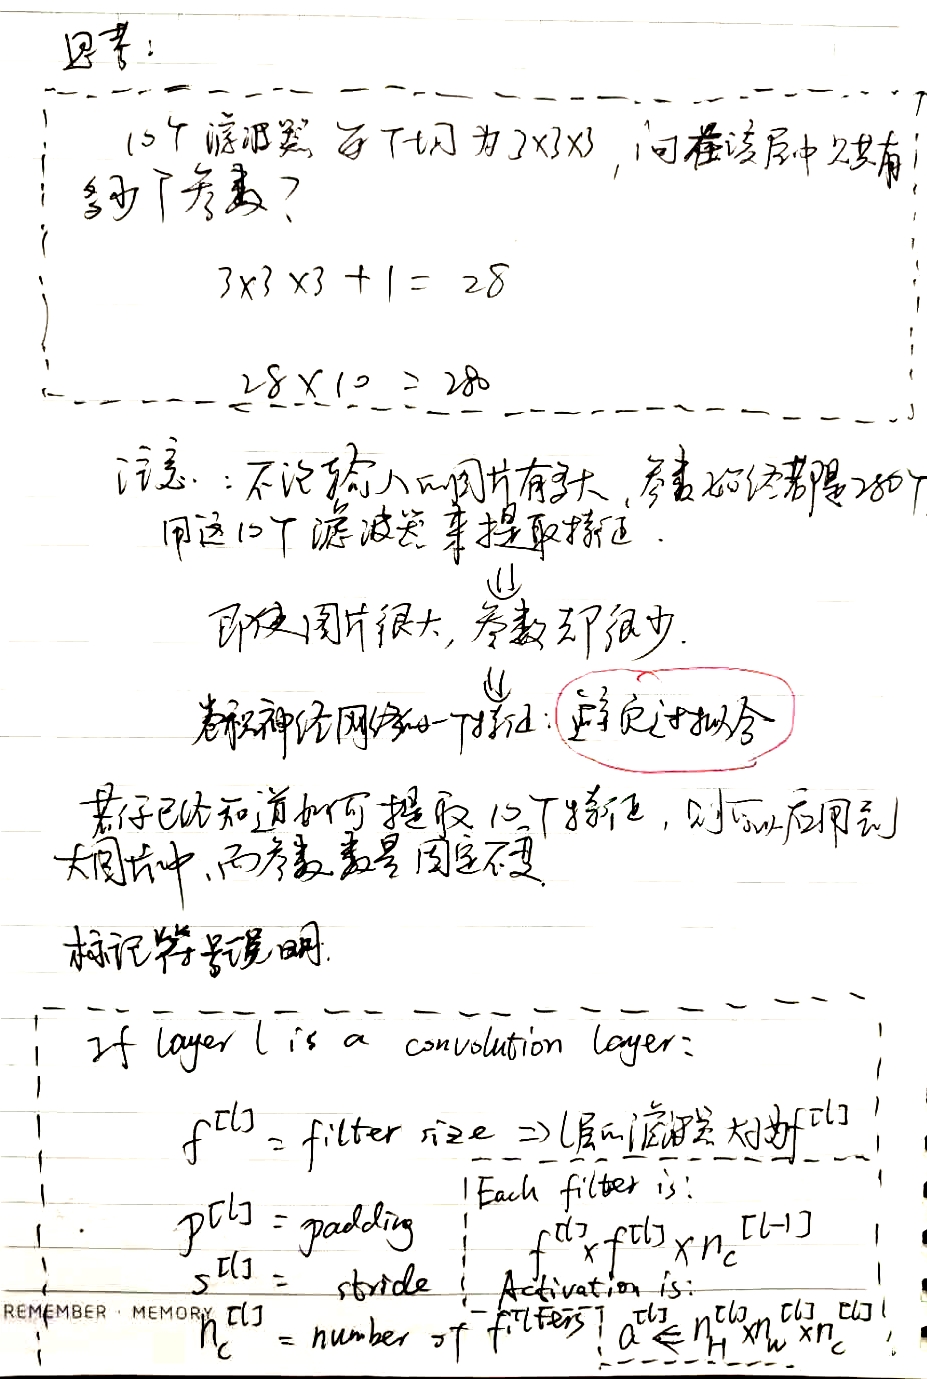 思考:
10个滤波器 每个均为3×3×3, 问在该层中总共有
多少个参数?
3×3×3+1= 28
28×10=280
注意: 不论输入的图片有多大, 参数始终都是280个
用这10个滤波器来提取特征.
⇓
即使图片很大, 参数却很少.
⇓
卷积神经网络的一个特征: 避免过拟合
若你已经知道如何提取10个特征, 则可以应用到
大图片中, 而参数数量固定不变
标记符号说明.
If layer l is a convolution layer:
f^[l] = filter size ⇒ l层的滤波器大小为f^[l]
p^[l] = padding
s^[l] = stride
n_c^[l] = number of filters
Each filter is:
f^[l] × f^[l] × n_c^[l-1]
Activation is:
a^[l] ← n_H^[l] × n_w^[l] × n_c^[l]
REMEMBER · MEMORY